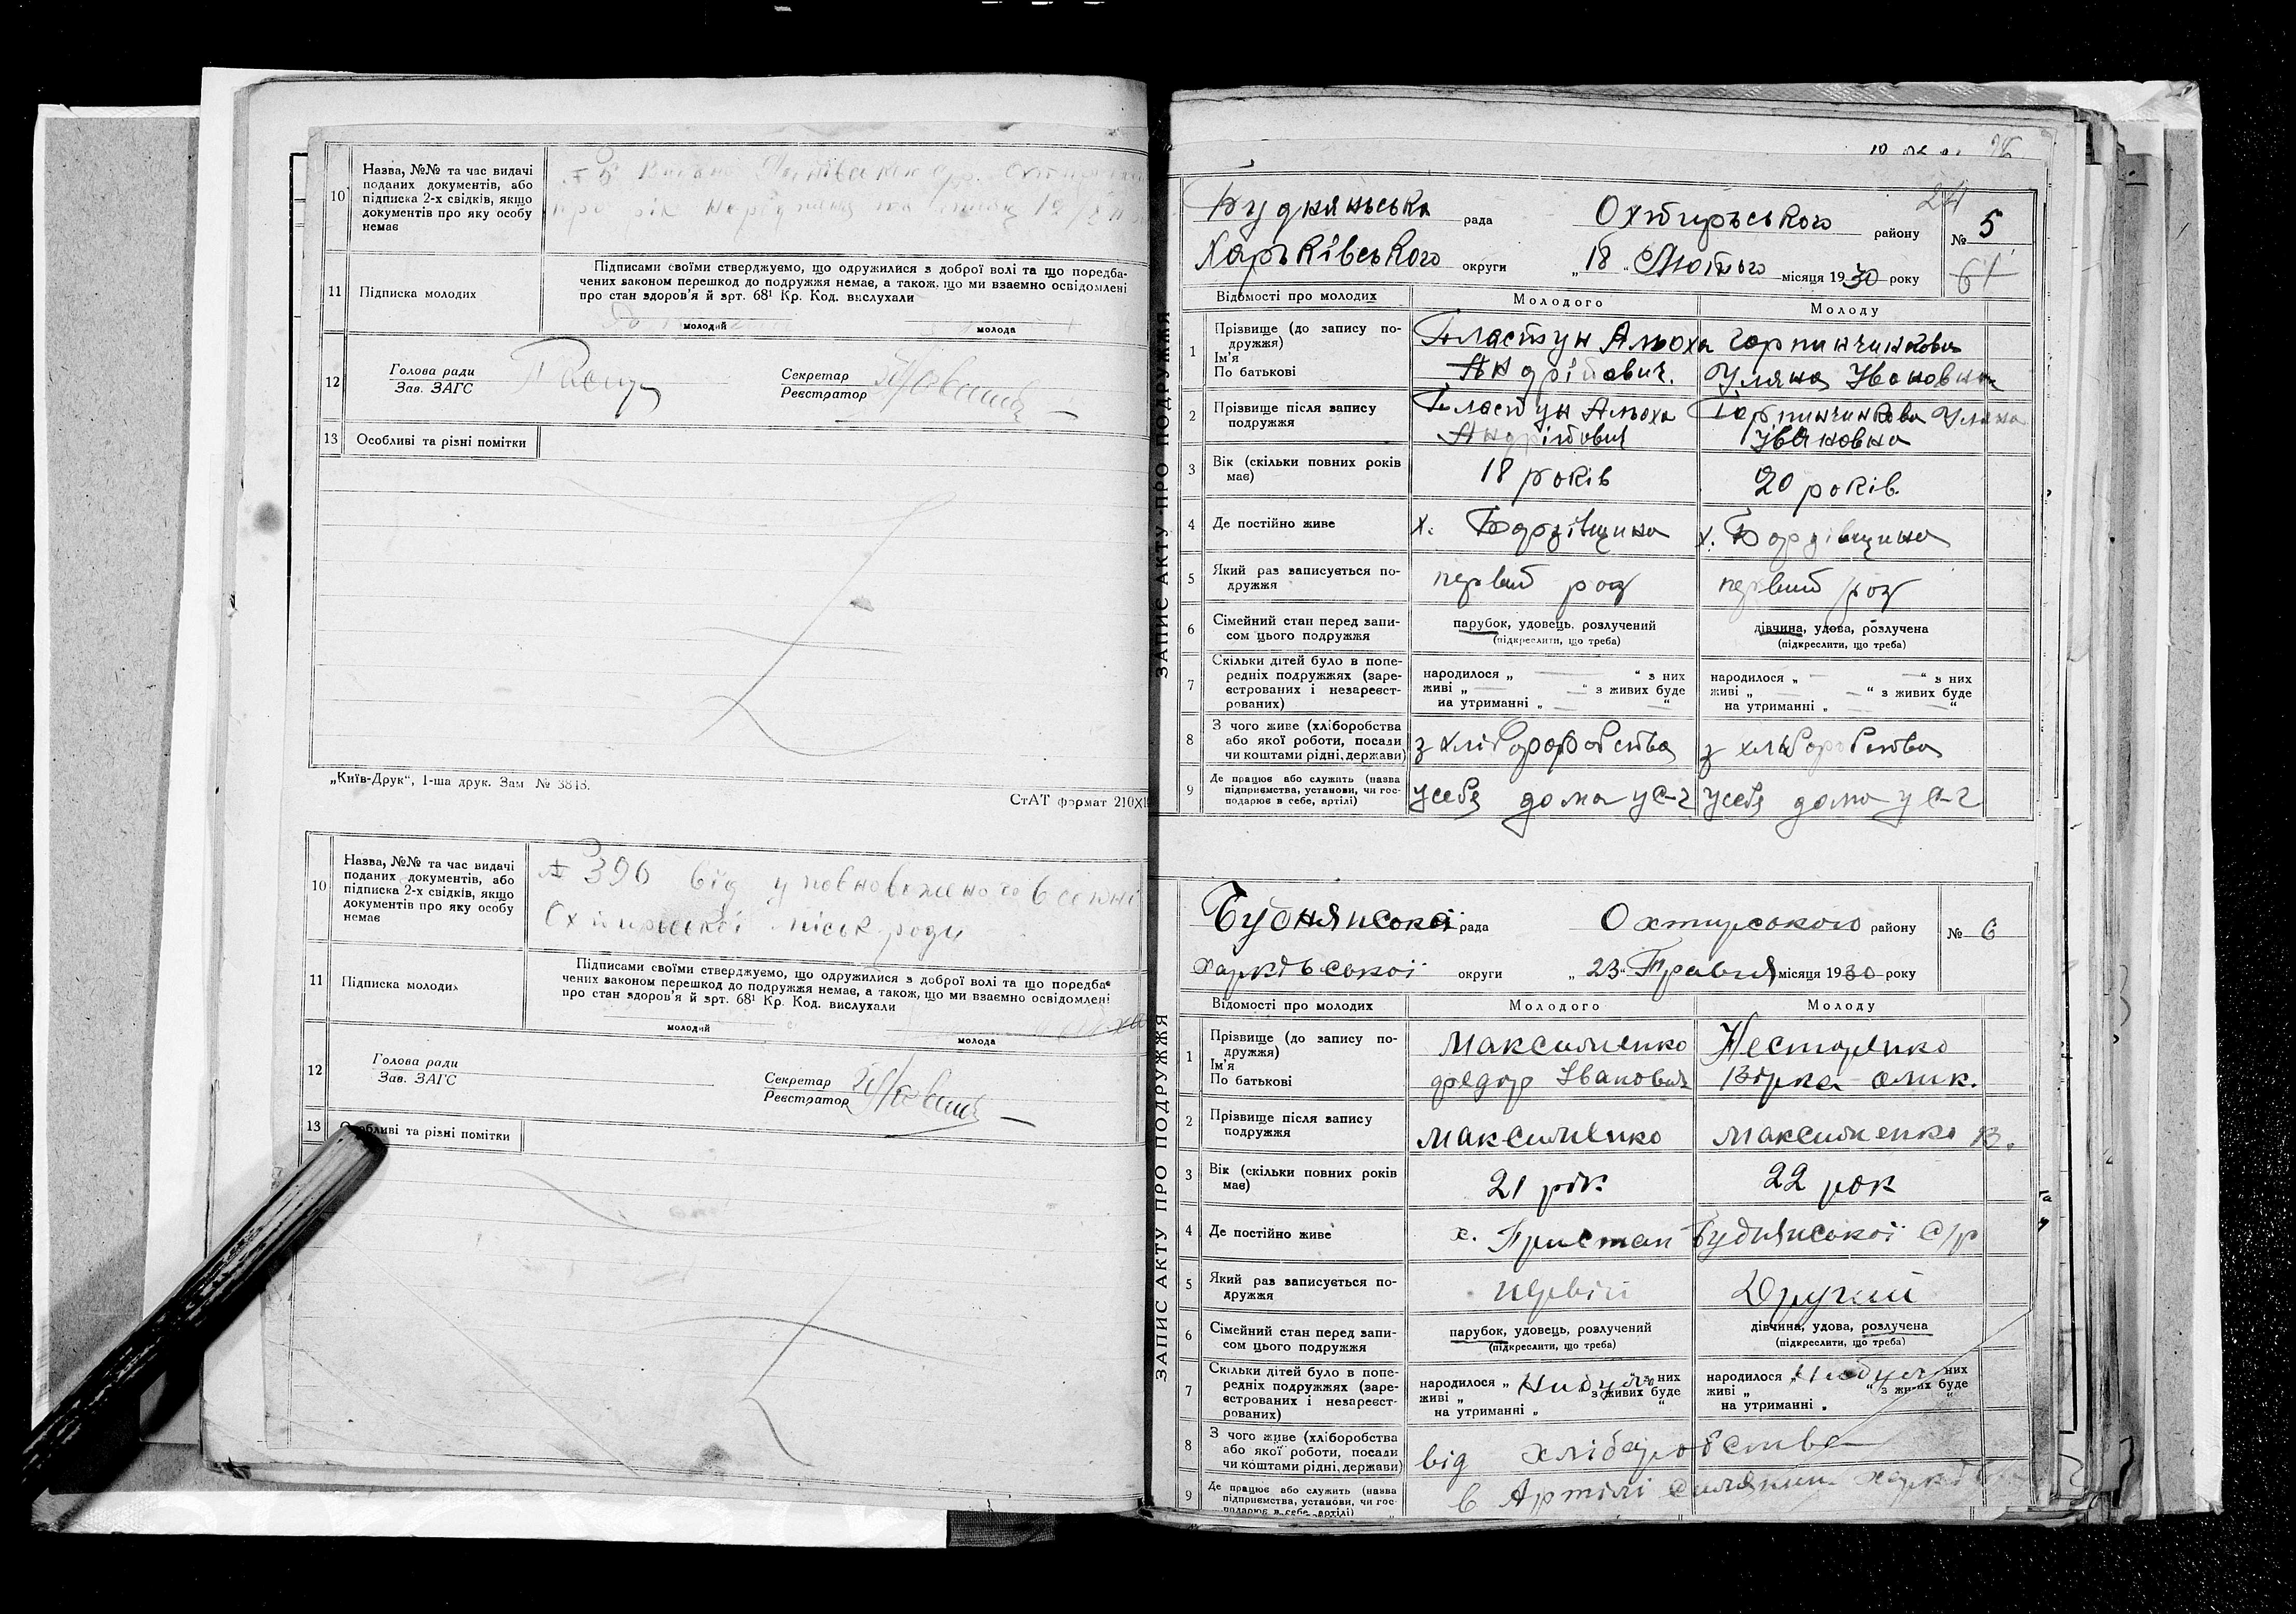 10
Назва, №№ та час видачі
поданих документів, або
підписка 2-х свідків, якщо
документів про яку особу
немає
11
Підписка молодих
Підписами своїми стверджуємо, що одружилися з доброї волі та що поредба-
чених законом перешкод до подружжя немає, а також, що ми взаємно освідомлені
про стан здоров'я й арт. 68¹ Кр. Код. вислухали
молодий
молода
12
Голова ради
Зав. ЗАГС
Секретар
Реєстратор
13
Особливі та різні помітки
„Київ-Друк“, 1-ша друк. Зам № 3813.
СтАТ формат 210X
10
Назва, №№ та час видачі
поданих документів, або
підписка 2-х свідків, якщо
документів про яку особу
немає
№ 390 від уповноваженого
міськ ради
11
Підписка молодих
Підписами своїми стверджуємо, що одружилися з доброї волі та що поредба-
чених законом перешкод до подружжя немає, а також, що ми взаємно освідомлені
про стан здоров'я й арт. 68¹ Кр. Код. вислухали
молодий
молода
12
Голова ради
Зав. ЗАГС
Секретар
Реєстратор
13
Особливі та різні помітки
ЗАПИС АКТУ ПРО ПОДРУЖЖЯ
24
Будняньська рада Охтирського району № 5
Харьківського округи „18“ Лютого місяця 1930 року
61
Відомості про молодих
Молодого
Молоду
1
Прізвище (до запису по-
дружжя)
Ім'я
По батькові
Пластун Альоха
Андрійович.
Горпинчинкова
Уляна Івановна
2
Прізвище після запису
подружжя
Пластун Альоха
Андрійович
Горпинчинкова Уляна
Івановна
3
Вік (скільки повних років
має)
18 років
20 років.
4
Де постійно живе
х. Бордзівщина
х. Бордзівщина
5
Який раз записується по-
дружжя
первий раз
первий раз
6
Сімейний стан перед запи-
сом цього подружжя
парубок, удовець, розлучений
(підкреслити, що треба)
дівчина, удова, розлучена
(підкреслити, що треба)
7
Скільки дітей було в попе-
редніх подружжях (заре-
єстрованих і незареєст-
рованих)
народилося „ — “ з них
живі „ — “ з живих буде
на утриманні „ — “
народилося „ — “ з них
живі „ — “ з живих буде
на утриманні „ — “
8
З чого живе (хліборобства
або якої роботи, посади
чи коштами рідні, держави)
з хліборобства
з хліборобства
9
Де працює або служить (назва
підприємства, установи, чи гос-
подарює в себе, артілі)
усебя дома у с-г
усебя дома у с-г
ЗАПИС АКТУ ПРО ПОДРУЖЖЯ
Буднянської рада Охтирсокого району № 6
округи „23“ Травня місяця 1930 року
Відомості про молодих
Молодого
Молоду
1
Прізвище (до запису по-
дружжя)
Ім'я
По батькові
Максименко
Федор Іванович
Нестеренко
Вірка олик.
2
Прізвище після запису
подружжя
Максименко
Максименко В.
3
Вік (скільки повних років
має)
21 рік
22 рок
4
Де постійно живе
х. Пристан Буднянської с/р
5
Який раз записується по-
дружжя
первій
Другий
6
Сімейний стан перед запи-
сом цього подружжя
парубок, удовець, розлучений
(підкреслити, що треба)
дівчина, удова, розлучена
(підкреслити, що треба)
7
Скільки дітей було в попе-
редніх подружжях (заре-
єстрованих і незареєст-
рованих)
народилося „ “ з них
живі „ “ з живих буде
на утриманні „ “
народилося „ “ з них
живі „ “ з живих буде
на утриманні „ “
8
З чого живе (хліборобства
або якої роботи, посади
чи коштами рідні, держави)
від хліборобства
9
Де працює або служить (назва
підприємства, установи, чи гос-
подарює в себе, артілі)
в Артілі